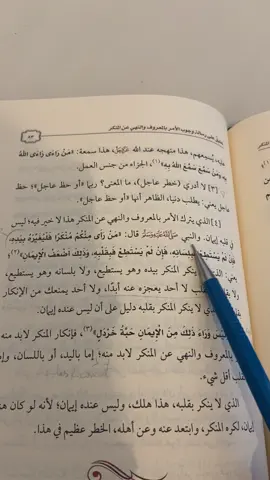 تعليق على رسالة وجوب الأمر بالمعروف والنهي عن المنكر
٨٣
يُسمعهم، هذا متهجه عند الله ﷺ، هذا سمعة: «مَنْ رَاءَى رَاءَى اللهُ
وَمَنْ سَمَّعَ سَمَّعَ اللهُ بِهِ»(١)، الجزاء من جنس العمل.
[٣] لا أدري (خطر عاجل)، ما المعنى؟ ربما «أو حظ عاجل»؛ حظ
عاجل يعني: يطلب دنيا، الظاهر أنها «أو حظ عاجل».
[٤] الذي يترك الأمر بالمعروف والنهي عن المنكر هذا لا خير فيه؛ ليس
في قلبه إيمان. والنبي ﷺ قال: «مَنْ رَأَى مِنْكُمْ مُنْكَرًا فَلْيُغَيِّرْهُ بِيَدِهِ،
فَإِنْ لَمْ يَسْتَطِعْ فَبِلِسَانِهِ، فَإِنْ لَمْ يَسْتَطِعْ فَبِقَلْبِهِ، وَذَلِكَ أَضْعَفُ الْإِيمَانِ»(٢)
يعني: المنكر بيده وهو يستطيع، ولا بلسانه وهو يستطيع،
بقلبه لا أحد يعجزه عنه أبدًا، ولا أحد يمنعك من الإنكار
المنكر بقلبه دليل على أن ليس عنده إيمان:
«لَيْسَ وَرَاءَ ذَلِكَ مِنَ الْإِيمَانِ حَبَّةُ خَرْدَلٍ»(٣)، فإنكار المنكر لابد منه
بالمعروف والنهي عن المنكر لابد منه؛ إما باليد، أو باللسان، وإما
بالقلب أقل شيء.
الذي لا ينكر بقلبه، هذا هلك، وليس عنده إيمان؛ لأنه لو كان عنده
إيمان، لكره المنكر، وابتعد عنه وعن أهله، الخطر عظيم في هذا.